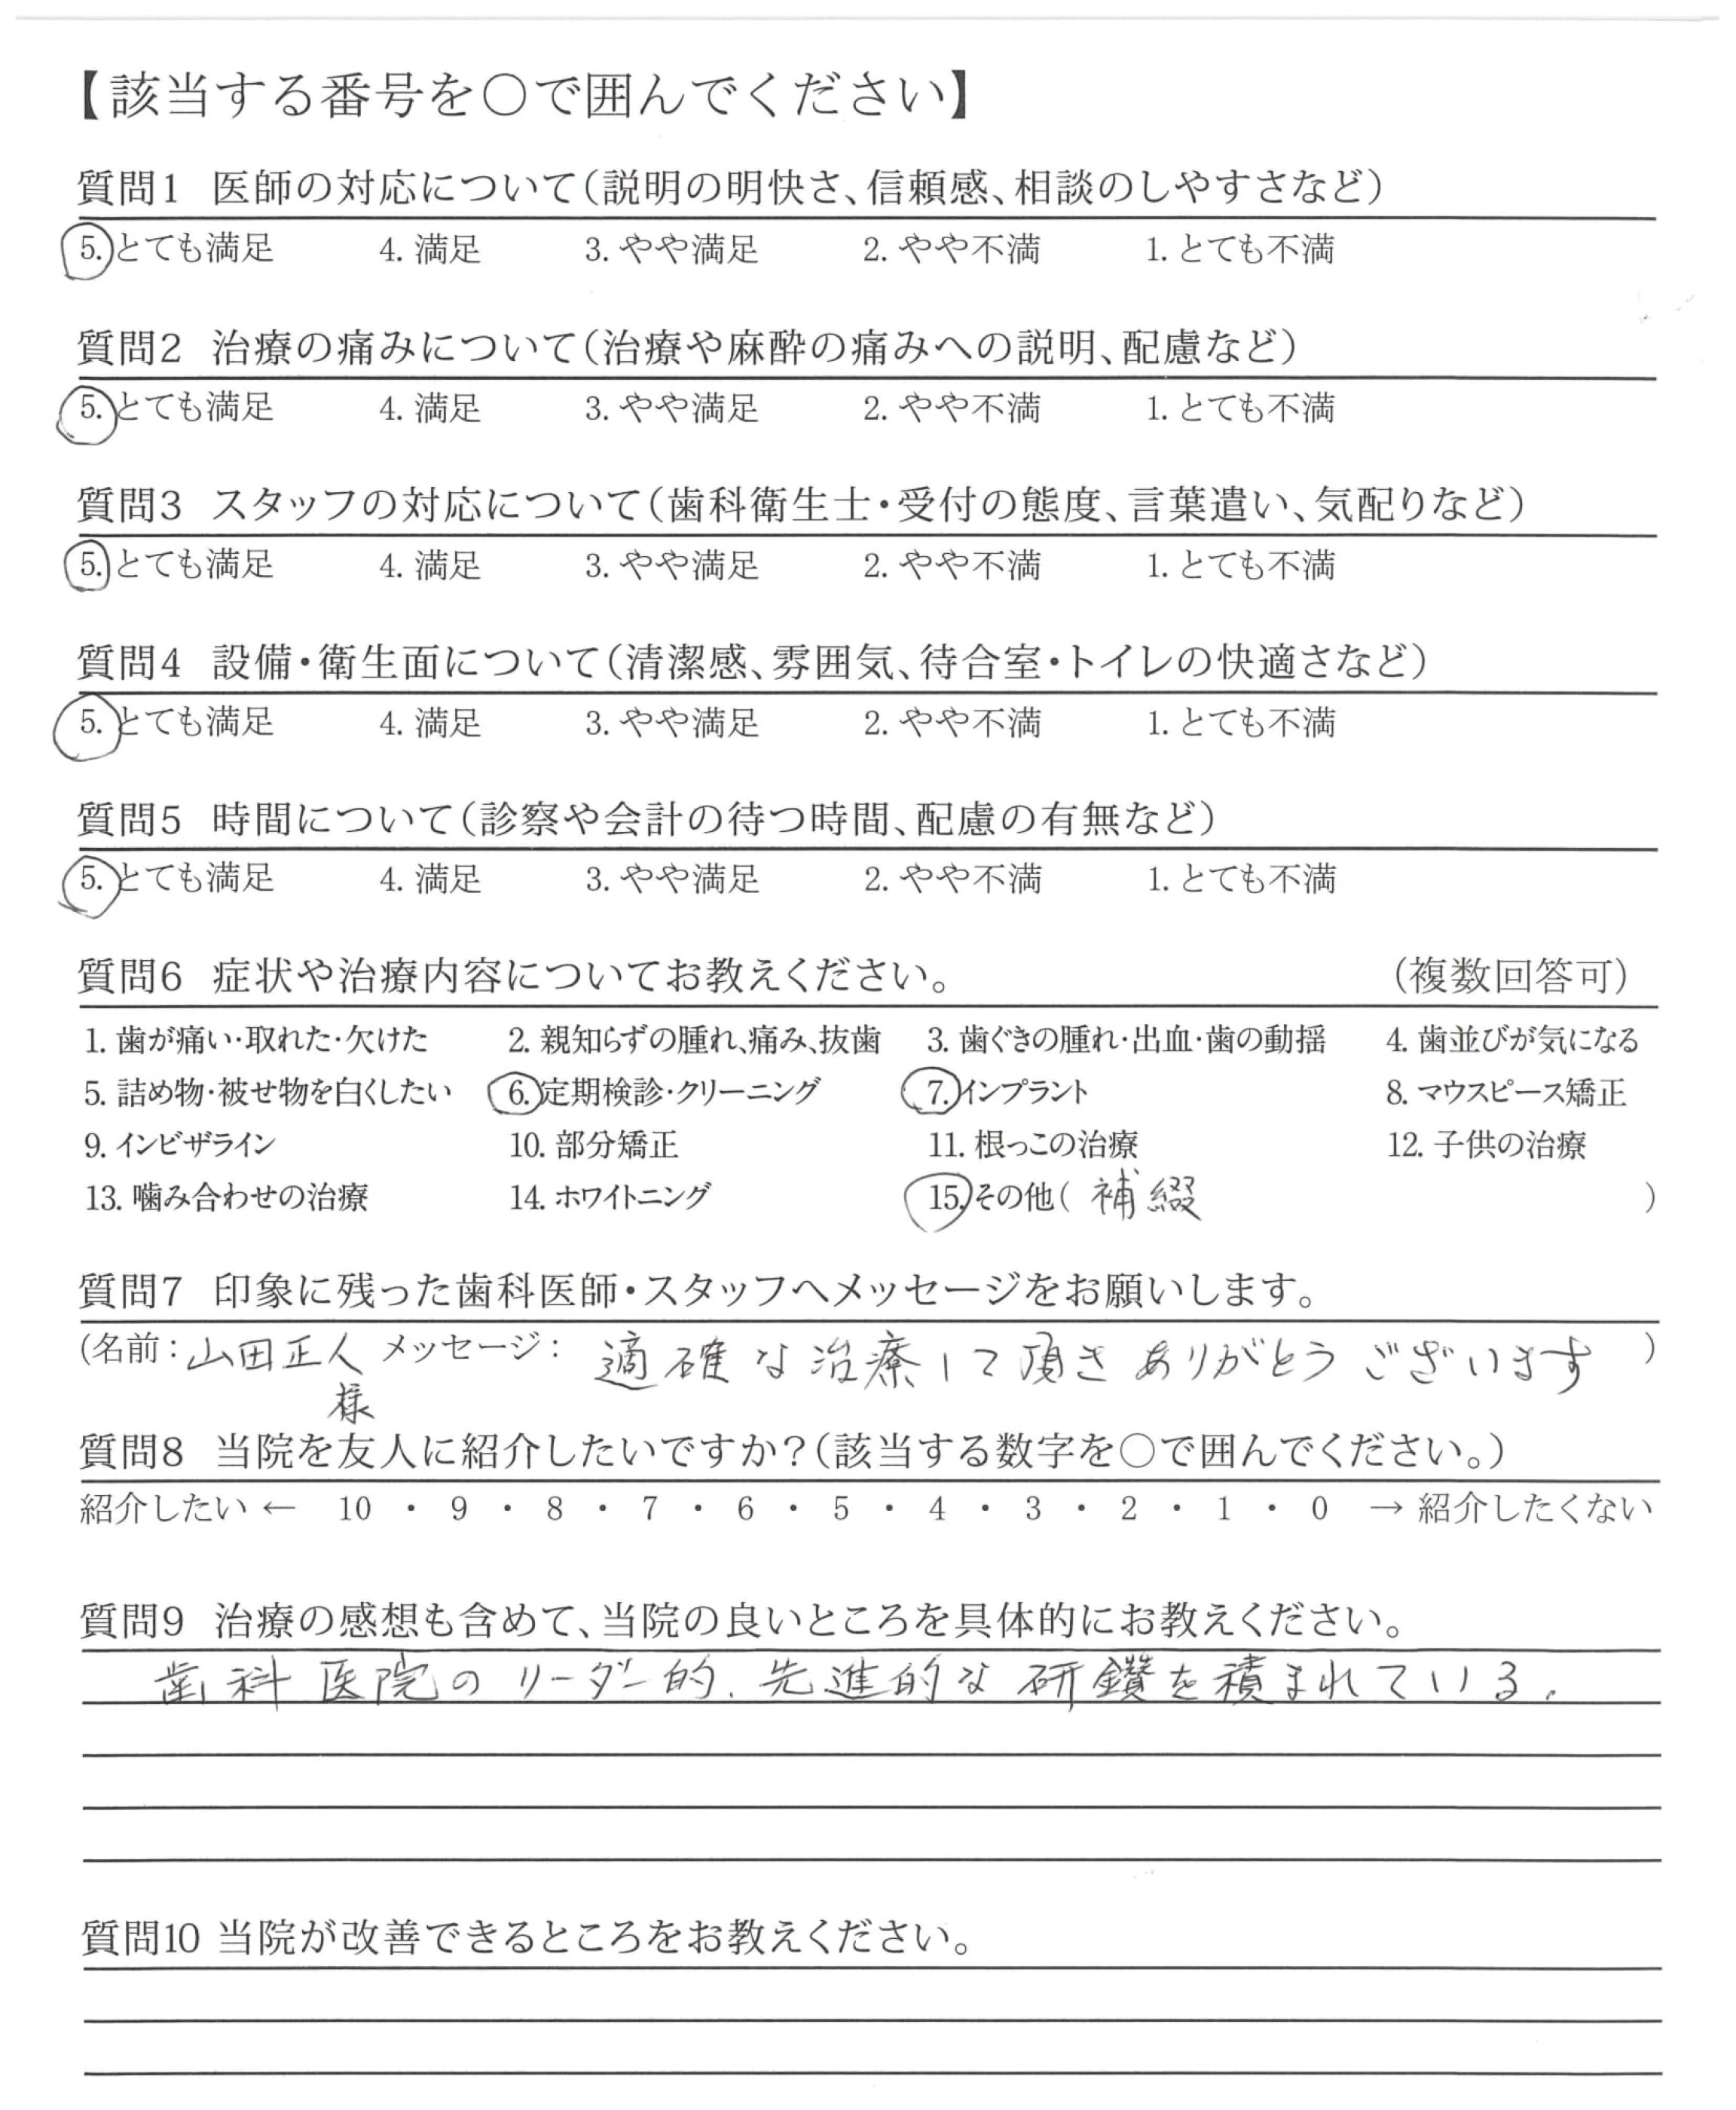 【該当する番号を○で囲んでください】
質問1 医師の対応について(説明の明快さ、信頼感、相談のしやすさなど)
5. とても満足 4. 満足 3. やや満足 2. やや不満 1. とても不満
質問2 治療の痛みについて(治療や麻酔の痛みへの説明、配慮など)
5. とても満足 4. 満足 3. やや満足 2. やや不満 1. とても不満
質問3 スタッフの対応について(歯科衛生士・受付の態度、言葉遣い、気配りなど)
5. とても満足 4. 満足 3. やや満足 2. やや不満 1. とても不満
質問4 設備・衛生面について(清潔感、雰囲気、待合室・トイレの快適さなど)
5. とても満足 4. 満足 3. やや満足 2. やや不満 1. とても不満
質問5 時間について(診察や会計の待つ時間、配慮の有無など)
5. とても満足 4. 満足 3. やや満足 2. やや不満 1. とても不満
質問6 症状や治療内容についてお教えください。 (複数回答可)
1. 歯が痛い・取れた・欠けた 2. 親知らずの腫れ、痛み、抜歯 3. 歯ぐきの腫れ・出血・歯の動揺 4. 歯並びが気になる
5. 詰め物・被せ物を白くしたい 6. 定期検診・クリーニング 7. インプラント 8. マウスピース矯正
9. インビザライン 10. 部分矯正 11. 根っこの治療 12. 子供の治療
13. 噛み合わせの治療 14. ホワイトニング 15. その他( 補綴 )
質問7 印象に残った歯科医師・スタッフへメッセージをお願いします。
(名前: 山田正人 メッセージ: 適確な治療して頂きありがとうございます )
様
質問8 当院を友人に紹介したいですか?(該当する数字を○で囲んでください。)
紹介したい ← 10 ・ 9 ・ 8 ・ 7 ・ 6 ・ 5 ・ 4 ・ 3 ・ 2 ・ 1 ・ 0 → 紹介したくない
質問9 治療の感想も含めて、当院の良いところを具体的にお教えください。
歯科医院のリーダー的、先進的な研鑽を積まれている。
質問10 当院が改善できるところをお教えください。